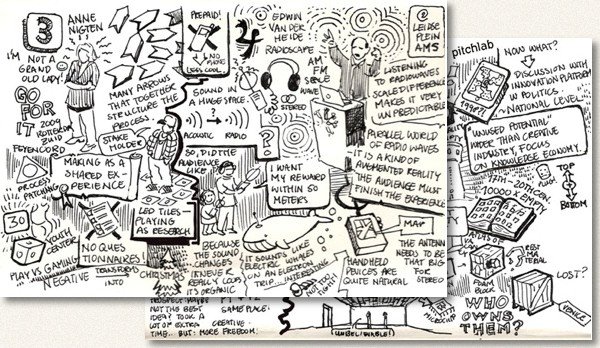 3
ANNE
NIGTEN
I'M NOT A
GRAND
OLD LADY!
GO
FOR
IT
2009
ROTTERDAM
ZUID
FEYENOORD
PROCESS
PATCHING
30
YOUTH
CENTER
PLAY VS GAMING
NEGATIVE
MANY ARROWS
THAT TOGETHER
STRUCTURE THE
PROCESS.
STAKE
HOLDER
MAKING AS A
SHARED EX-
PERIENCE.
LED TILES—
PLAYING
AS RESEARCH
NO QUES
TIONNAIRES!
TRANSFORMS
INTO
CHRISTMAS
PREPAID!
NO
PHONE
LESS COOL
4
EDWIN
VAN DER
HEIDE
RADIOSCAPE
@
LEIDSE
PLEIN
AMS
SOUND IN
A HUGE SPACE.
?
ACOUSTIC
RADIO
STEREO
AM
FM
WAVE
SO, DID THE
AUDIENCE
LIKE
?
I WANT
MY REWARD
WITHIN 50
METERS
BECAUSE
THE SOUND
CHANGES
IT NEVER
REALLY LOOPS
IT'S ORGANIC
IT SOUNDS LIKE
ELECTRIC WHALES
ON AN ELECTRON
TRIP... INTERESTING
LISTENING
TO RADIOWAVES
SCALE DIFFERENCE
MAKES IT VERY
UNPREDICTABLE
PARALLEL WORLD
OF RADIO WAVES
—IT IS A KIND OF
AUGMENTED REALITY
THE AUDIENCE MUST
FINISH THE EXPERIENCE
HANDHELD
DEVICES ARE
QUITE NATURAL
MAP
THE ANTENN
NEEDS TO BE
THAT BIG
FOR
STEREO
pitchlab
NOW WHAT?
DISCUSSION WITH
INNOVATION PLATFORM
IN POLITICS.
NATIONAL LEVEL.
"UNUSED POTENTIAL"
WIDER THAN CREATIVE
INDUSTRY, FOCUS
ON KNOWLEDGE ECONOMY.
TOP
BOTTOM
17TH–20TH CEN.
10000 X EMPTY
ATLAS OF
FOAM
BLOCK
LOST?
VENICE
WHO
OWNS
THEM?
MAYBE
NOT THE BEST
IDEA? TOOK A
LOT OF EXTRA
CREATIVE
TIME. BUT: MORE FREEDOM!
SAME PLACE!
(UNBELIEVABLE!)
MICROCHIP